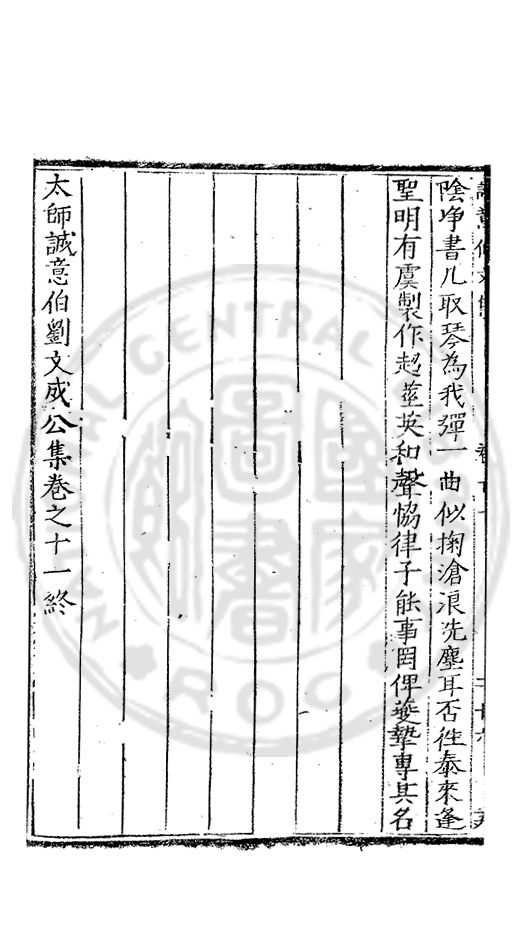 陰净書几取琴為我彈一曲似掬滄浪洗塵耳否徃泰來逢
聖明有虞製作起莖英和聲恊律子能事罔俾夔摯專其名
太師誠意伯劉文成公集卷之十一終
NATIONAL CENTRAL
ROC